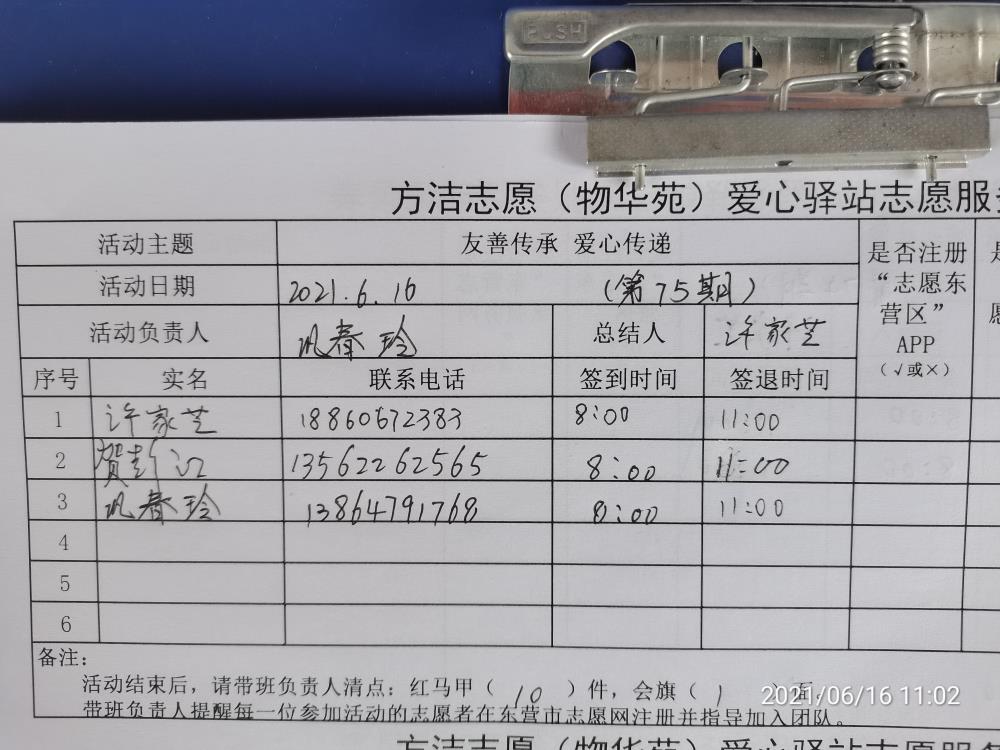 PUSH
方洁志愿（物华苑）爱心驿站志愿服
活动主题 友善传承 爱心传递 是否注册“志愿东营区”APP（√或×）
活动日期 2021.6.16 （第75期）
活动负责人 巩春玲 总结人 许家芝
序号 实名 联系电话 签到时间 签退时间
1 许家芝 18860672383 8:00 11:00
2 贺彭江 13562262565 8:00 11:00
3 巩春玲 13864791768 8:00 11:00
4
5
6
备注：
活动结束后，请带班负责人清点：红马甲（ 10 ）件，会旗（ 1 ）面
带班负责人提醒每一位参加活动的志愿者在东营市志愿网注册并指导加入团队。
2021/06/16 11:02
方洁志愿（物华苑）爱心驿站志愿服